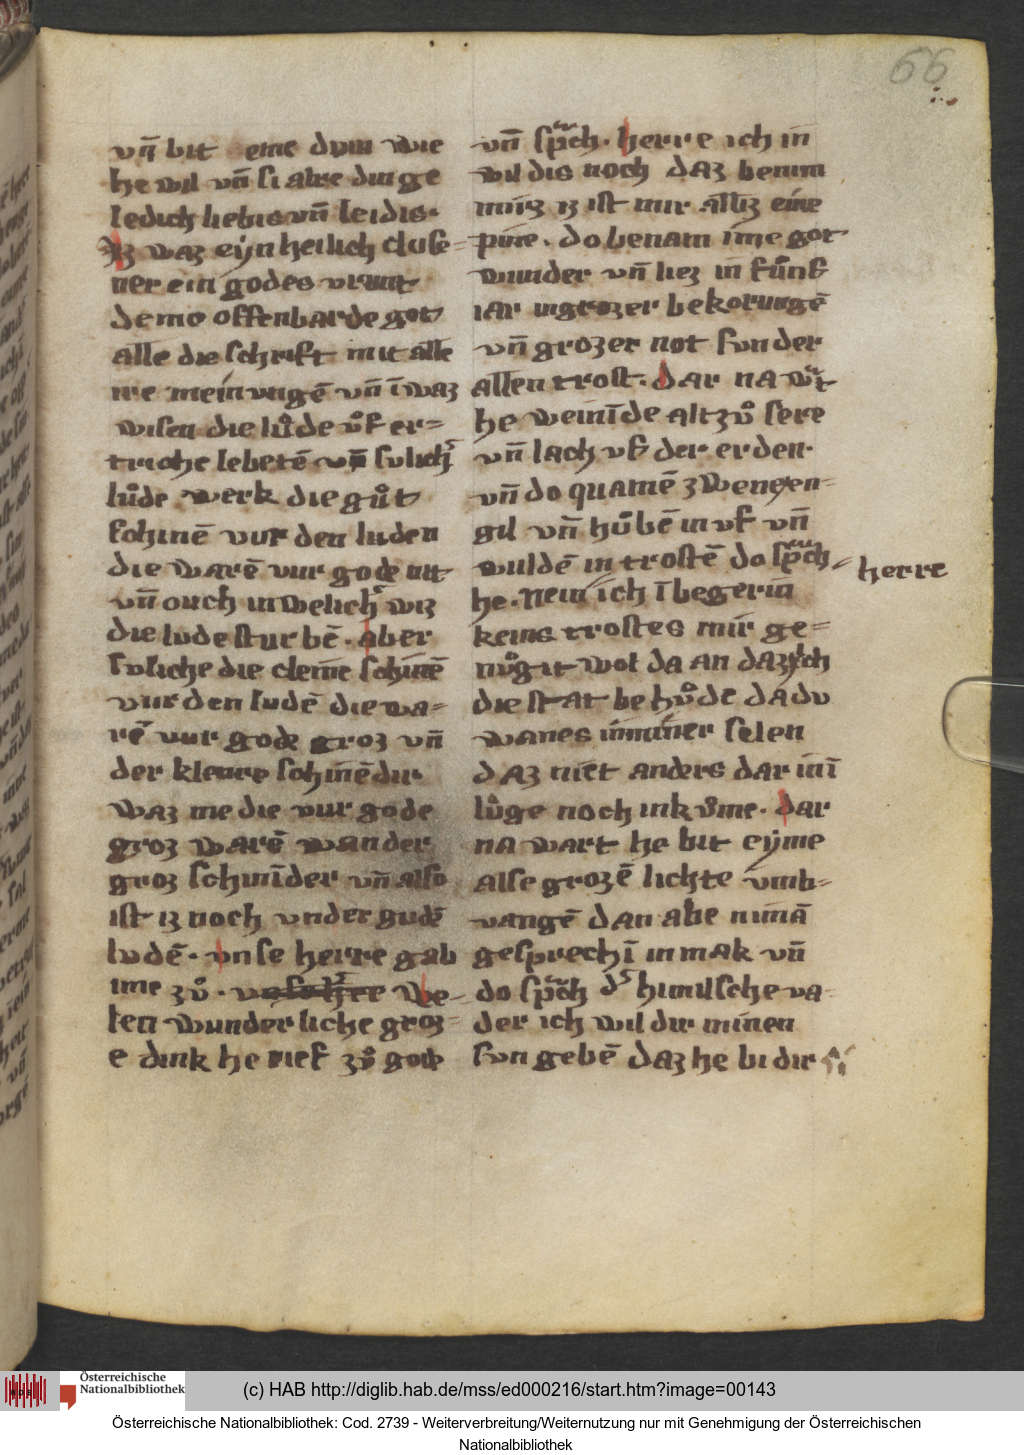 66
vn̄ bit eme dvm wie
he wil vn̄ si alre dinge
ledich liebis vn̄ leidis·
Iz waz eẏn heilich cluse=
ner ein godes vrunt
deme offenbarde got
alle die schrift mit alle
me meinungē vn̄ ī waz
wisen die lůde ůf er=
triche lebetē vn̄ sulich
lůde werk die gůt
schinē vur den luden
die warē vur gode nit
vn̄ ouch in welich wiz
die lude sturbē. aber
suliche die cleine schinē
vur den ludē die wa=
rē vur gode groz vn̄
der kleine schinē dur
waz me die vur gode
groz warē wan der
groz schinīder vn̄ also
ist iz noch vnder gudē
ludē. vnse herre gab
ime zů. we=
len wunderliche groz=
e dink he rief zů gode
vn̄ sp̄ch. herre ich in
wil dis noch daz benim
mirz iz ist mir allīz eine
pine. do benam ime got
wunder vn̄ liez in fůnf
iar in grozer bekorungē
vn̄ grozer not sunder
allen trost. dar na wͬt
he weinīde alt zů sere
vn̄ lach uf der erden.
vn̄ do quamē zwene en=
gil vn̄ hůbē in uf vn̄
wuldē in trostē do sp̄ch
he. Nein ich ī begerin = herre
keins trostes mir ge=
nůgit wol da an daz ich
die stat behůde da du
wanes inminer selen
daz niet anders dar inī
lůge noch inkůme. dar
na wart he bit eẏme
alse grozē lichte vmb=
vangē dan abe nimā
gesprechī in mak vn̄
do sp̄ch dͤ himilsche va=
der ich wil dir minen
sun gebē daz he bi dir si
(c) HAB http://diglib.hab.de/mss/ed000216/start.htm?image=00143
Österreichische Nationalbibliothek
Österreichische Nationalbibliothek: Cod. 2739 - Weiterverbreitung/Weiternutzung nur mit Genehmigung der Österreichischen
Nationalbibliothek